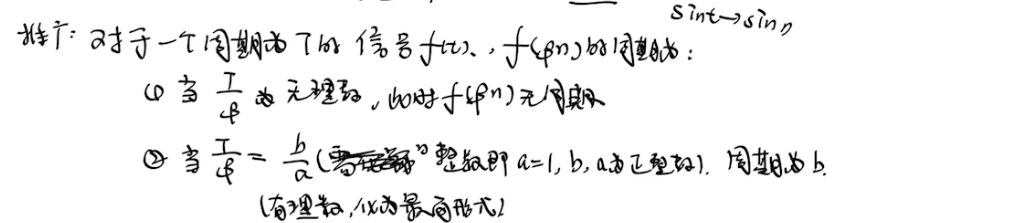 sint→sinn
推广：对于一个周期为T的信号f(t)、f(φn)的周期为：
(1) 当 T/φ 为无理数，此时f(φn)无周期
② 当 T/φ = b/a (整数即a=1, b, a为正整数). 周期为b.
(有理数，化为最简形式)